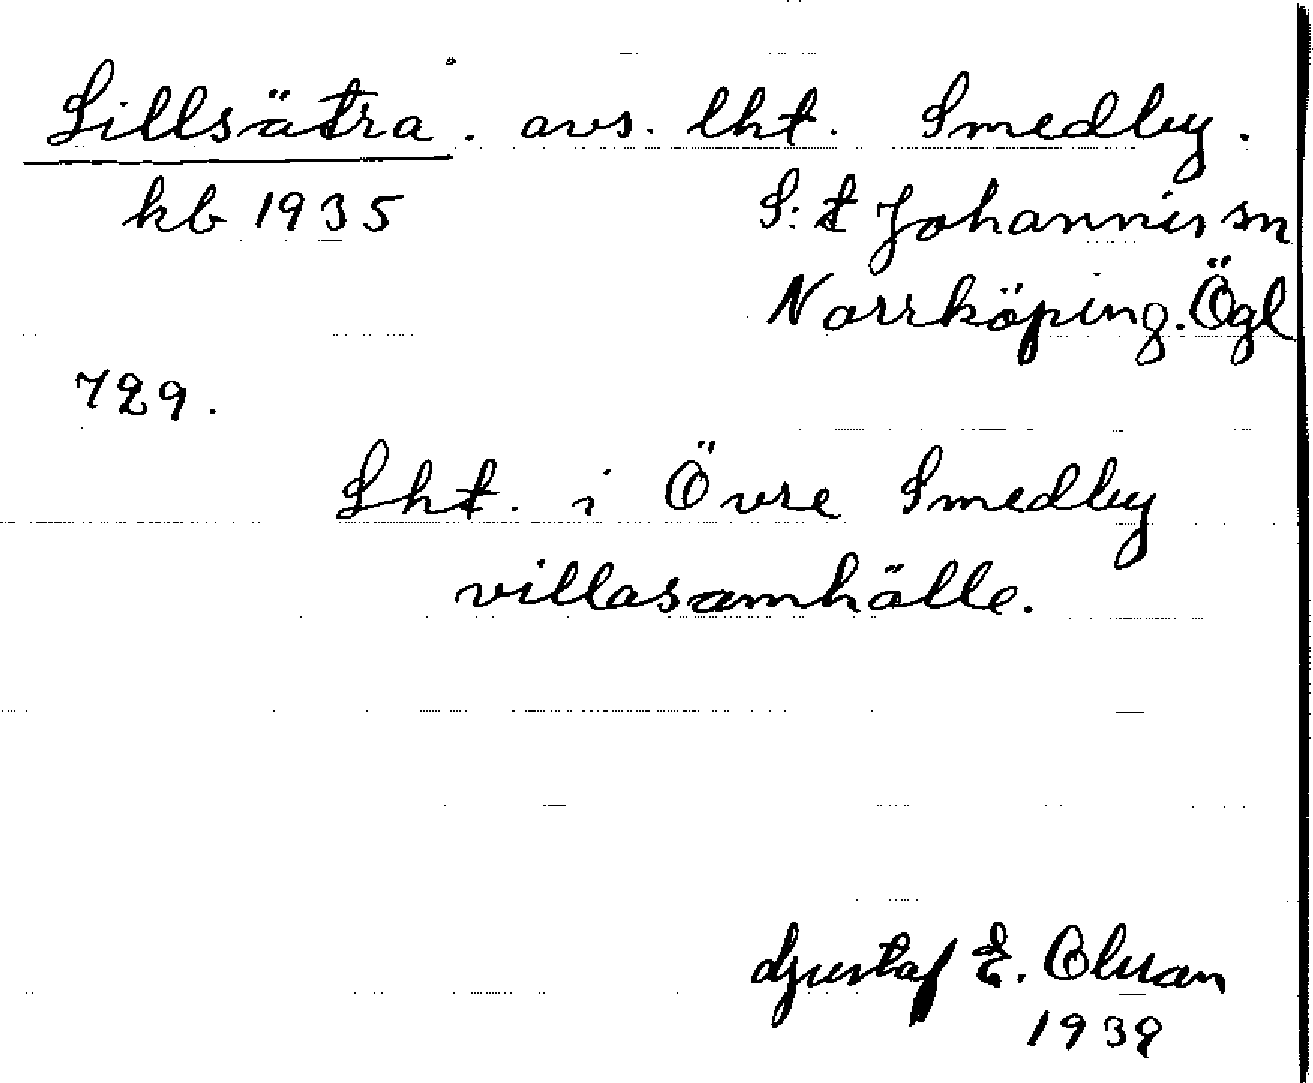 Lillsätra. avs. lht. Smedby.
kb 1935 S:t Johannis sn
Norrköping. Ögl
729.
Lht. i Övre Smedby
villasamhälle.
Gustaf E. Olsson
1939